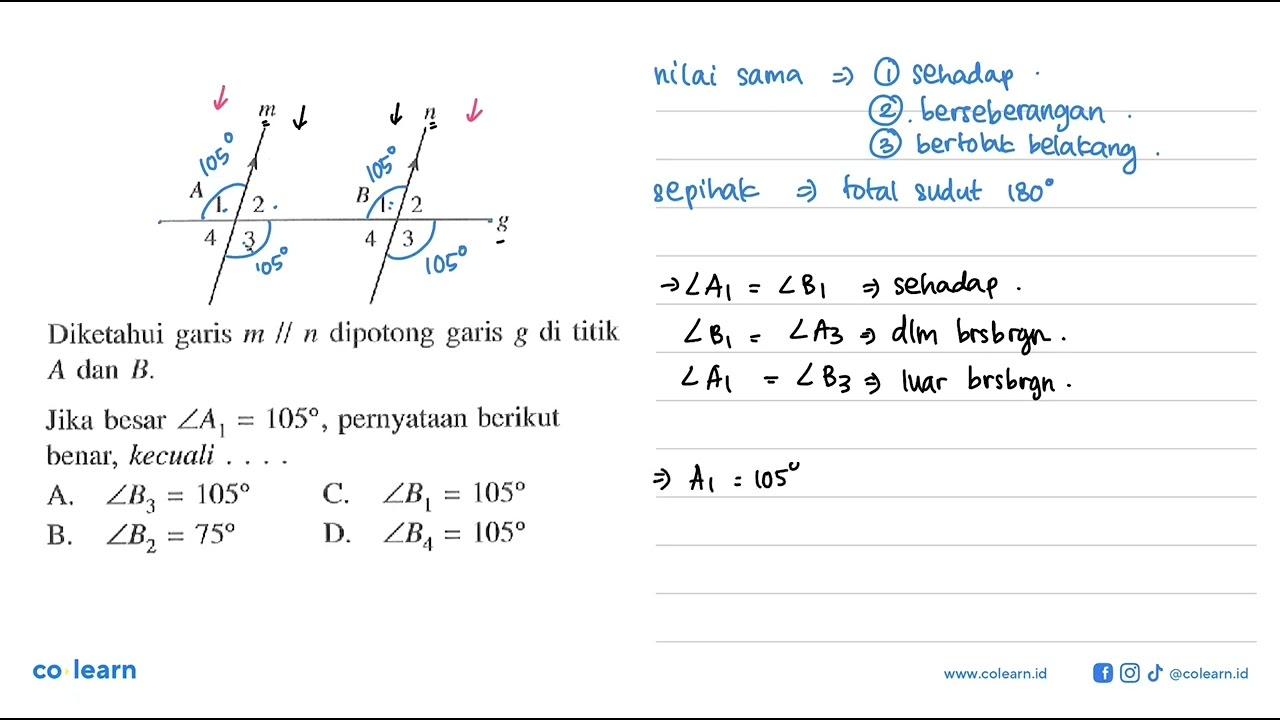 m
n
105°
105°
A
1
2
B
1
2
g
4
3
4
3
105°
105°
Diketahui garis m // n dipotong garis g di titik
A dan B.
Jika besar ∠A₁ = 105°, pernyataan berikut
benar, kecuali . . . .
A. ∠B₃ = 105° C. ∠B₁ = 105°
B. ∠B₂ = 75° D. ∠B₄ = 105°
nilai sama ⇒ ① sehadap .
② . berseberangan .
③ bertolak belakang .
sepihak ⇒ total sudut 180°
→ ∠A₁ = ∠B₁ ⇒ sehadap .
∠B₁ = ∠A₃ ⇒ dlm brsbrgn .
∠A₁ = ∠B₃ ⇒ luar brsbrgn .
⇒ A₁ = 105°
co learn
www.colearn.id
@colearn.id